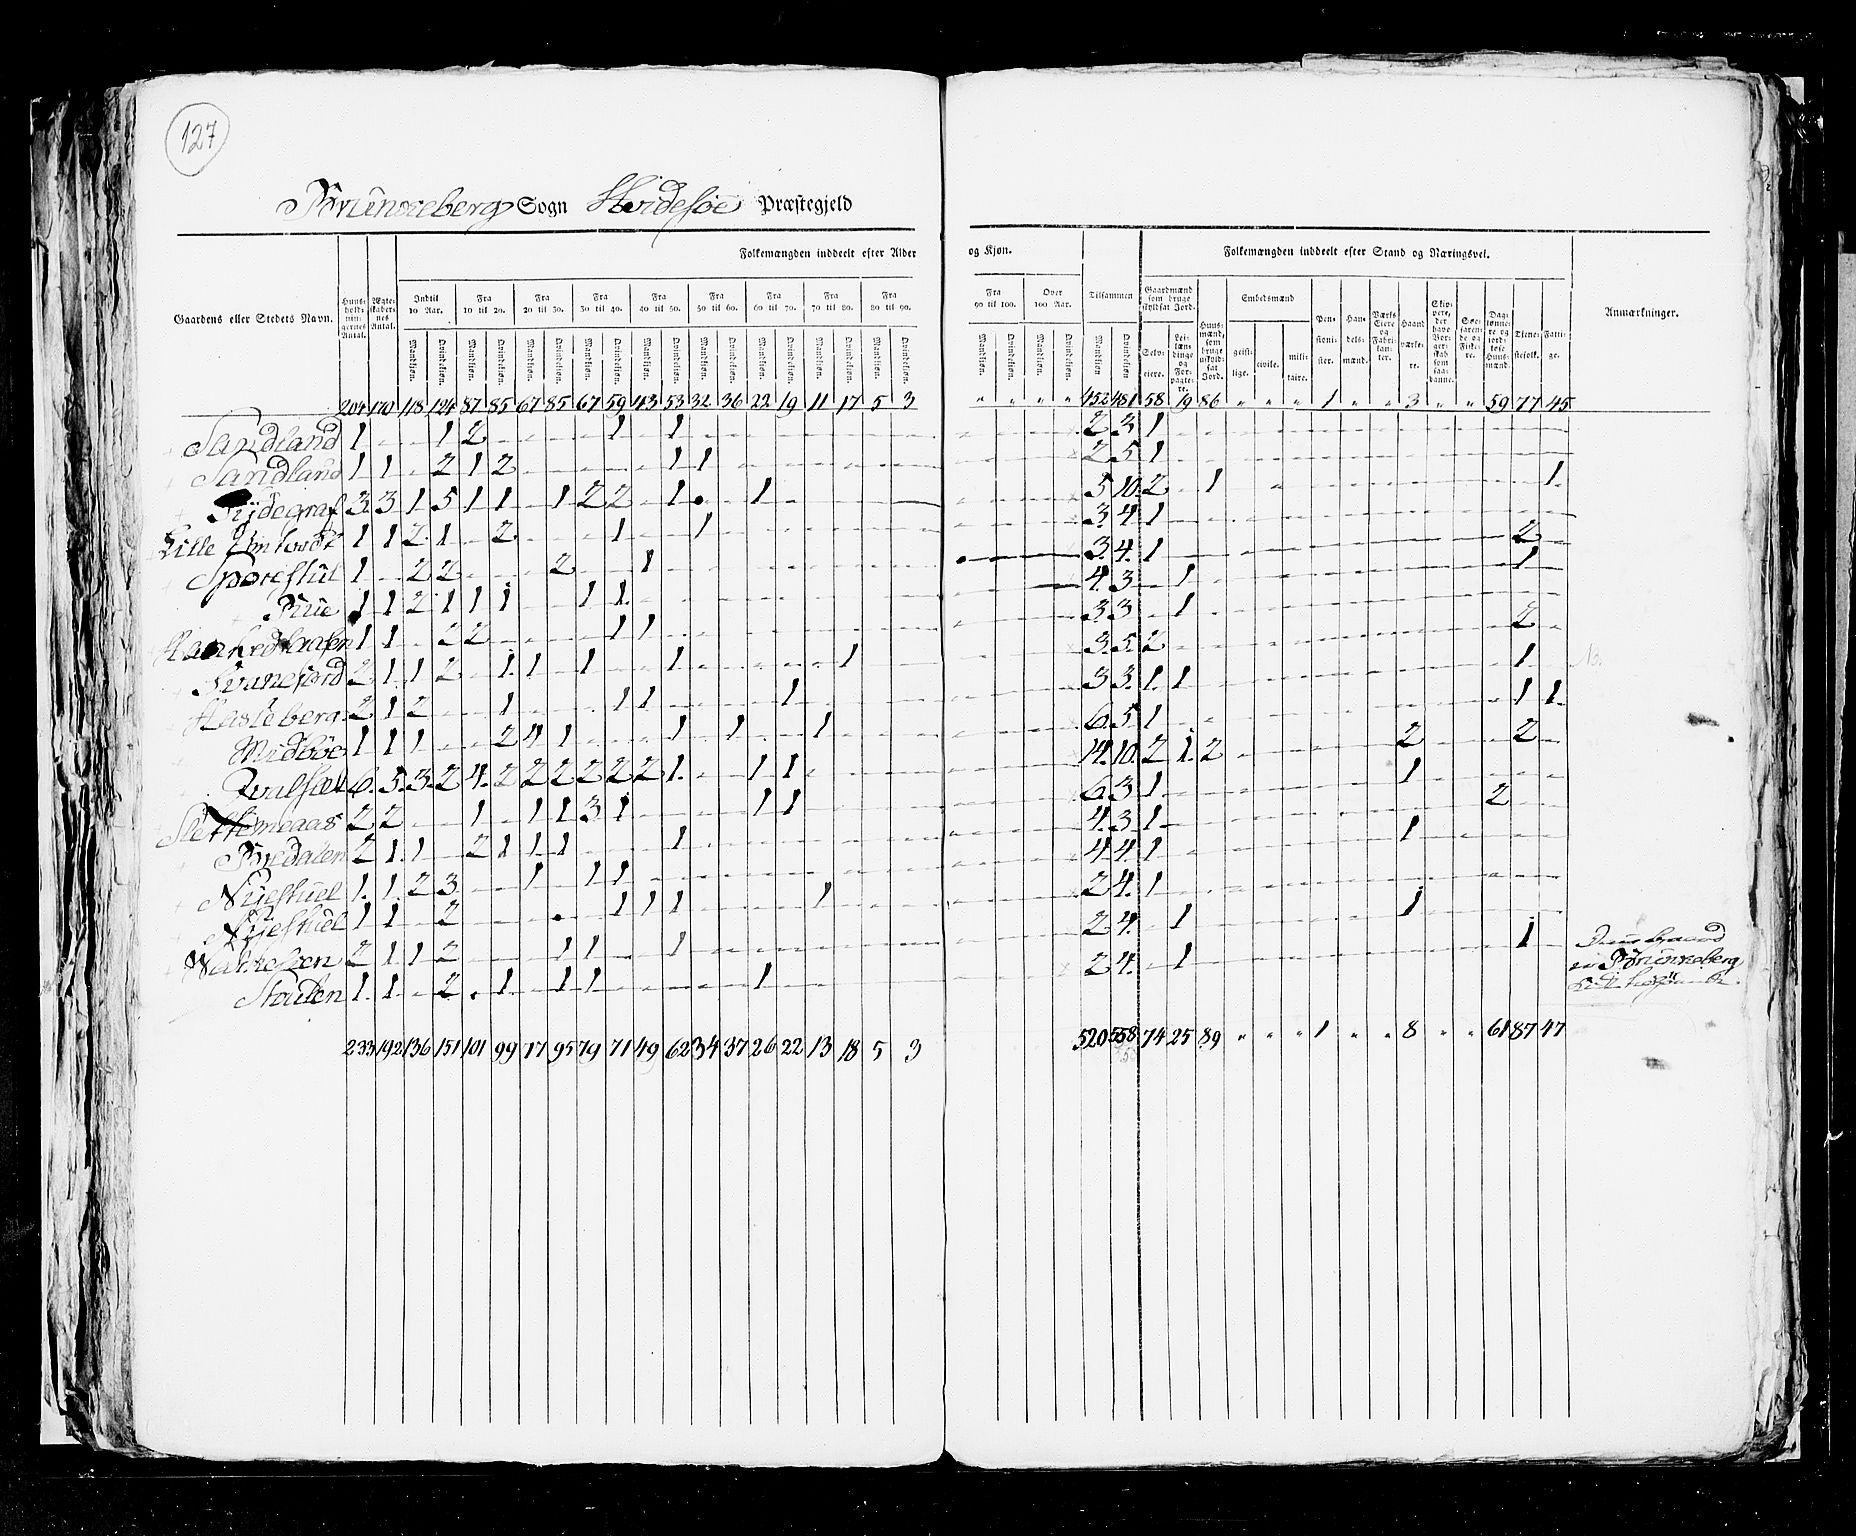 127
Brunkeberg Sogn Hvidesøe Præstegjeld
Gaardens eller Stedets Navn.
Huus-holdnin-gernes Antal.
Ægte-skaber-nes Antal.
Folkemængden inddeelt efter Alder og Kjøn.
Indtil 10 Aar.
Fra 10 til 20.
Fra 20 til 30.
Fra 30 til 40.
Fra 40 til 50.
Fra 50 til 60.
Fra 60 til 70.
Fra 70 til 80.
Fra 80 til 90.
Fra 90 til 100.
Over 100 Aar.
Mandkjøn. Qvindekjøn.
Tilsammen
Folkemængden inddeelt efter Stand og Næringsvei.
Gaardmænd som bruge skyldsat Jord.
Selv-eiere.
Lei-lændinge og For-pagtere.
Huus-mænd, som bruge uskyldsat Jord.
Embedsmænd
geist-lige. civile. mili-taire.
Pen-sioni-ster.
Han-dels-mænd.
Værks Eiere og Fabri-kanter.
Haand-værke-re.
Skippere, der have Bor-gerskab som saa-danne.
Søe-farende og Fiskere.
Dag-lønnere og jord-løse Huus-mænd.
Tjene-stefolk.
Fatti-ge.
Anmærkninger.
204 170 118 124 87 85 67 85 67 59 43 53 32 36 22 19 11 17 5 3 " " " " 452 481 58 19 86 " " " 1 " " 3 " " 59 77 45
Sandland 1 - - 1 2 - - - - 1 - 1 - - 2 3 1
Sandland 1 1 - 2 1 2 - - - - - 1 1 - 2 5 1
3 3 1 5 1 1 - 1 2 2 - 1 - - 1 - 5 10 2 - 1 - 1
Lille 1 1 2 1 - 2 - - - 1 - - 1 - 3 4 1
Sporestul 1 - 2 2 - - - 2 - - 1 - 3 4 1 - 2
1 1 2 1 1 1 - - 1 1 - 4 3 - 1 - 1
1 1 - 2 2 - - - - 1 1 - 3 3 - 1
2 1 1 2 - 1 1 - 1 - - 1 - - - - - 1 - 3 5 2 - 2
Hasleberg 2 1 2 - - 1 - - - 1 1 - - - - 1 - 3 3 1 1 - 1
Midbøe 1 1 1 - - 2 4 1 - - - 1 - 1 - - 1 - 6 5 1 - 1 1
6 5 3 2 4 2 2 2 2 2 2 1 - - 1 1 - 14 10 2 1 2 - 2 - 2
2 2 - - 1 - 1 1 3 1 - - - - 1 1 - 6 3 1 - 1
2 1 1 - 2 1 1 1 - - - 1 - 4 3 1 - 2
Nyestuel 1 1 2 3 - - 1 - 1 1 - 4 4 1 - 1
Nyestuel 1 1 - 2 - - - - - 1 1 1 - - - - 1 - 2 4 1
2 1 1 2 - - - 1 1 - - 1 - 2 4 - 1 - 1
Stoulen 1 1 - 2 - 1 - 1 1 - - - - - 1 - 2 4 - 1 - 1
Brunkeberg
233 192 136 151 101 99 77 95 79 71 49 62 34 37 26 22 13 18 5 3 520 558 74 25 89 " " " 1 " " 8 " " 61 87 47